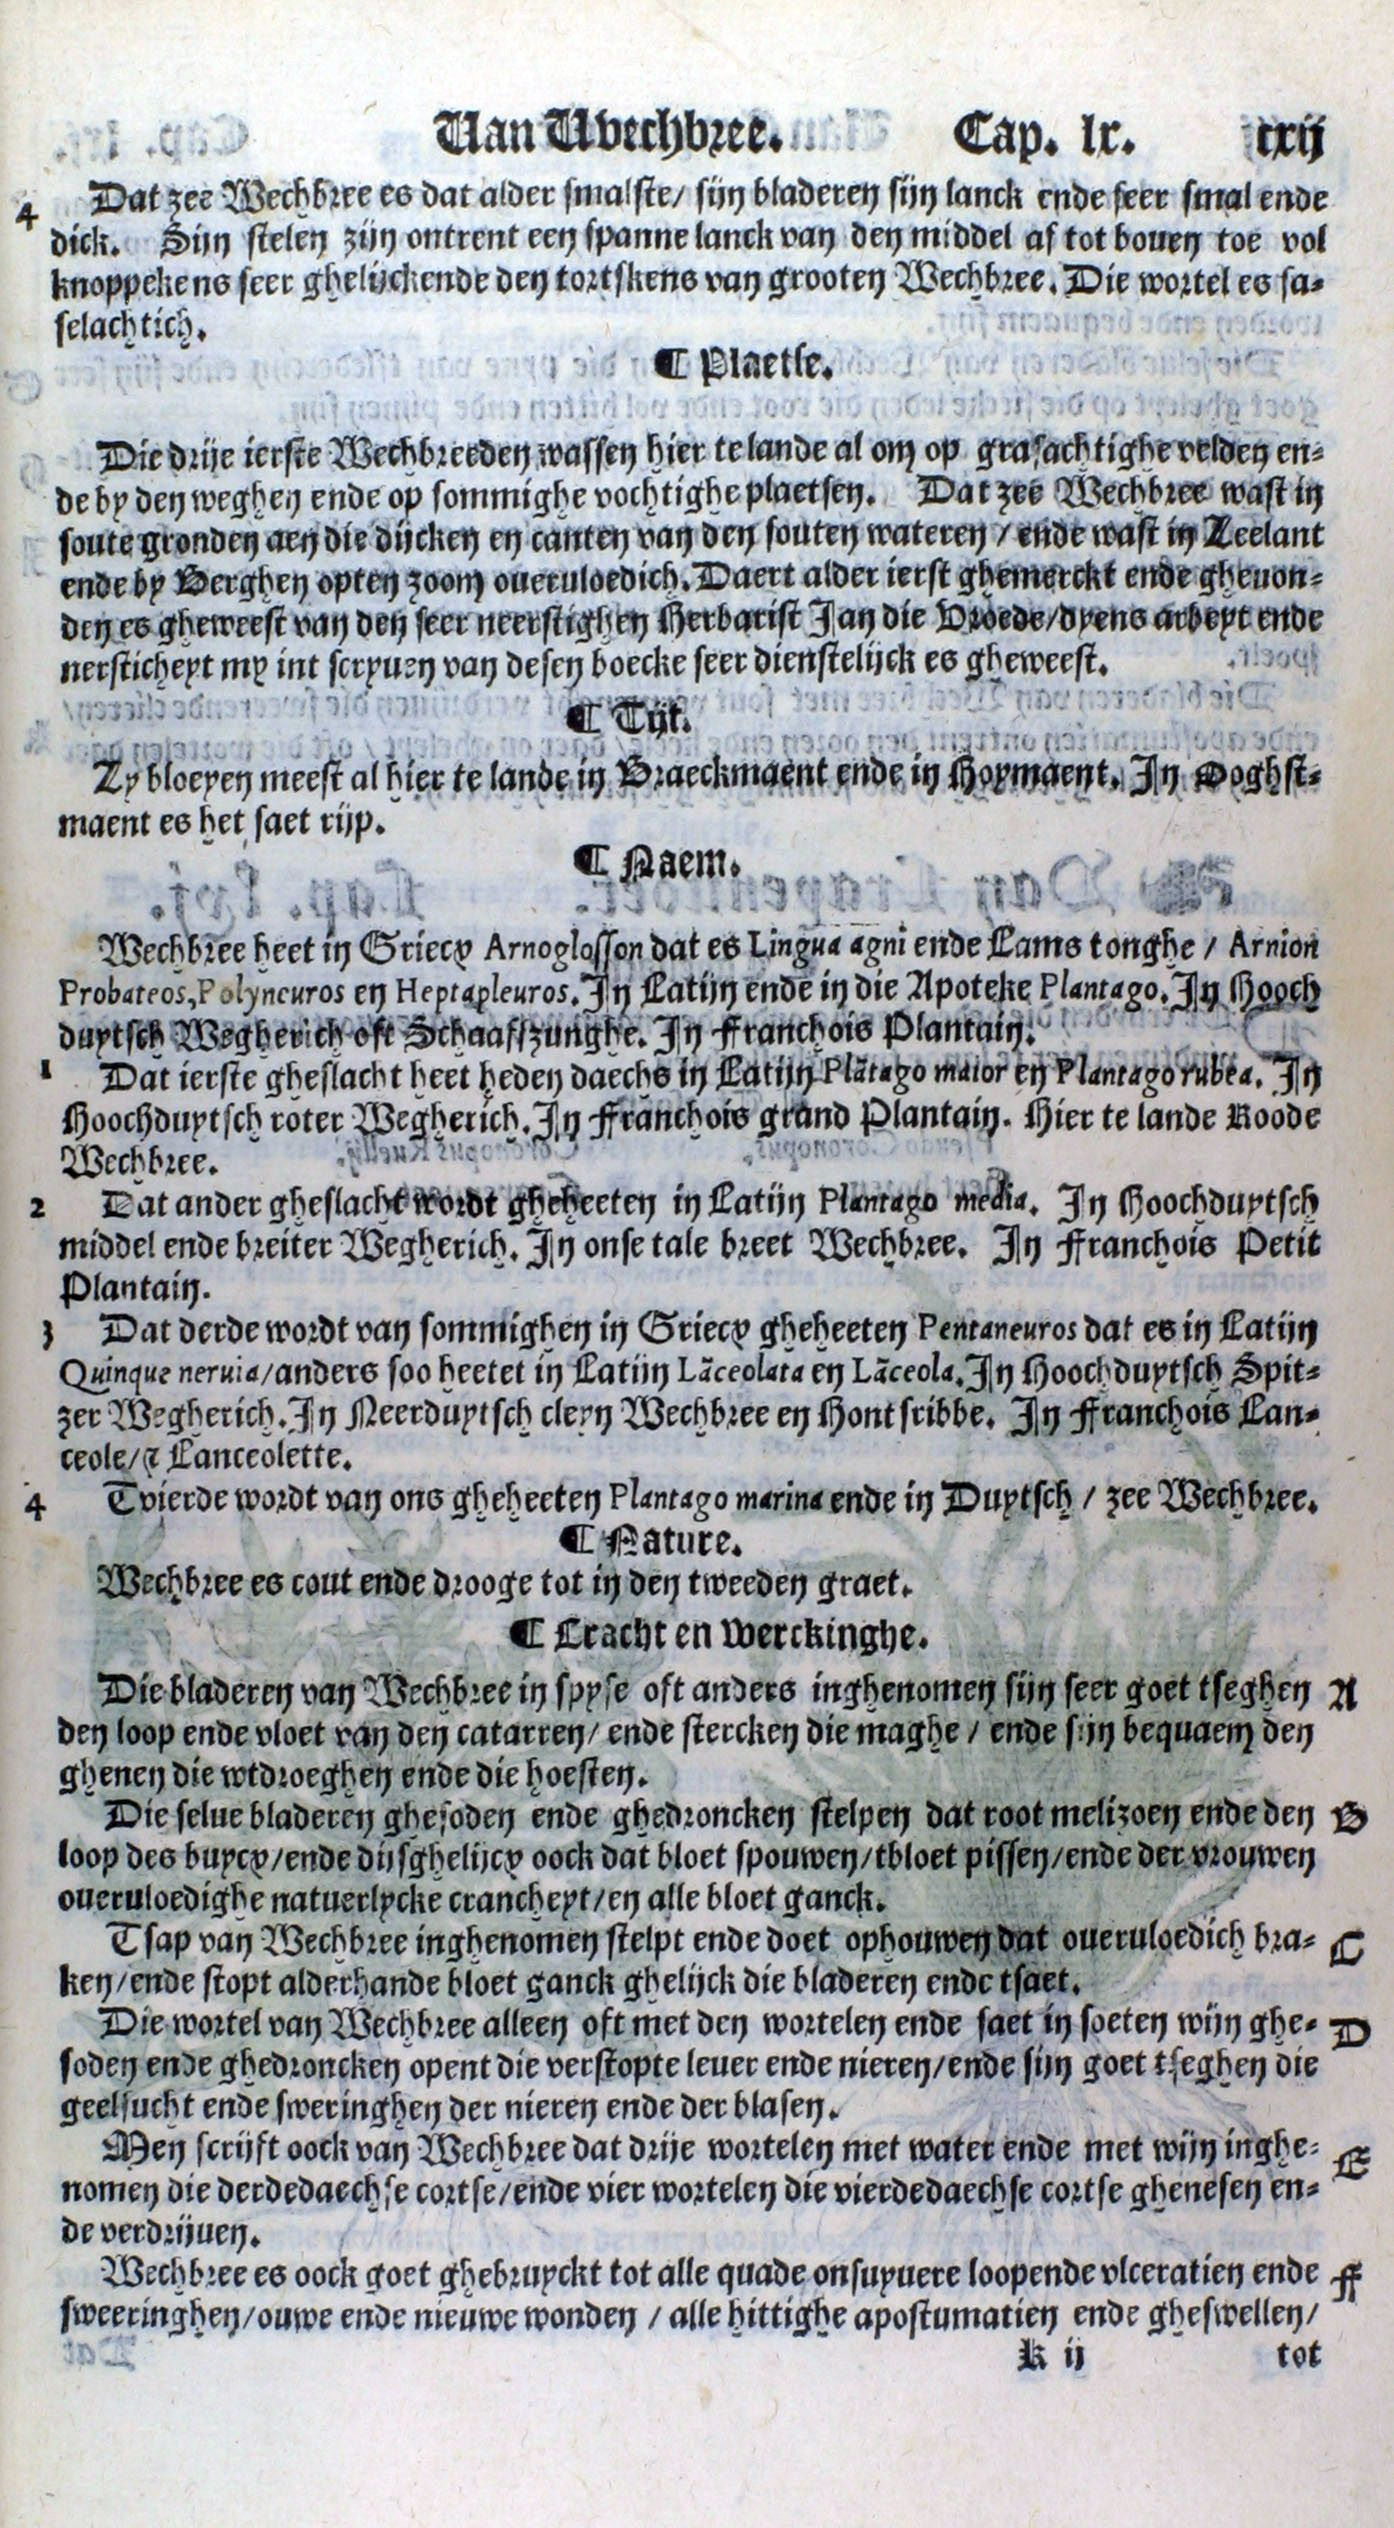 Van Wechbree. Cap. lx. cxij
4 Dat zee Wechbree es dat alder smalste/ sijn bladeren sijn lanck ende seer smal ende
dick. Sijn stelen zijn ontrent een spanne lanck van den middel af tot bouen toe vol
knoppekens seer ghelijckende den tortskens van grooten Wechbree. Die wortel es fa-
selachtich.
¶ Plaetse.
Die drije ierste Wechbreeden wassen hier te lande al om op grasachtighe velden en-
de by den weghen ende op sommighe vochtighe plaetsen. Dat zee Wechbree wast in
soute gronden aen die dijcken en canten van den souten wateren / ende wast in Zeelant
ende by Berghen opten zoom oueruloedich. Daert alder ierst ghemerckt ende gheuon-
den es gheweest van den seer neerstighen Herbarist Jan die Vroede/dyens arbeyt ende
nersticheyt my int scryuen van desen boecke seer dienstelijck es gheweest.
¶ Tijt.
Zy bloeyen meest al hier te lande in Braeckmaent ende in Hoymaent. In Ooghst-
maent es het saet rijp.
¶ Naem.
Wechbree heet in Griecx Arnoglosson dat es Lingua agni ende Lams tonghe / Arnion
Probateos, Polyneuros en Heptapleuros. In Latijn ende in die Apoteke Plantago. In Hooch
duytsch Wegherich oft Schaafzunghe. In Franchois Plantain.
1 Dat ierste gheslacht heet heden daechs in Latijn Plātago maior en Plantago rubea. In
Hoochduytsch roter Wegherich. In Franchois grand Plantain. Hier te lande Roode
Wechbree.
2 Dat ander gheslacht wordt gheheeten in Latijn Plantago media. In Hoochduytsch
middel ende breiter Wegherich. In onse tale breet Wechbree. In Franchois Petit
Plantain.
3 Dat derde wordt van sommighen in Griecx gheheeten Pentaneuros dat es in Latijn
Quinque neruia/anders soo heetet in Latijn Lāceolata en Lāceola. In Hoochduytsch Spit-
zer Wegherich. In Neerduytsch cleyn Wechbree en Hontsribbe. In Franchois Lan-
ceole/ꝛ Lanceolette.
4 Tvierde wordt van ons gheheeten Plantago marina ende in Duytsch / zee Wechbree.
¶ Nature.
Wechbree es cout ende drooge tot in den tweeden graet.
¶ Cracht en werckinghe.
Die bladeren van Wechbree in spyse oft anders inghenomen sijn seer goet tseghen A
den loop ende vloet van den catarren/ ende stercken die maghe / ende sijn bequaem den
ghenen die wtdroeghen ende die hoesten.
Die selue bladeren ghesoden ende ghedroncken stelpen dat root melizoen ende den B
loop des buycx/ende dijsghelijcx oock dat bloet spouwen/tbloet pissen/ende der vrouwen
oueruloedighe natuerlycke cranckeyt/en alle bloet ganck.
Tsap van Wechbree inghenomen stelpt ende doet ophouwen dat oueruloedich bra- C
ken/ende stopt alderhande bloet ganck ghelijck die bladeren ende tsaet.
Die wortel van Wechbree alleen oft met den wortelen ende saet in soeten wijn ghe- D
soden ende ghedroncken opent die verstopte leuer ende nieren/ende sijn goet tseghen die
geelsucht ende sweringhen der nieren ende der blasen.
Men scrijft oock van Wechbree dat drije wortelen met water ende met wijn inghe- E
nomen die derdedaechse cortse/ende vier wortelen die vierdedaechse cortse ghenesen en-
de verdrijuen.
Wechbree es oock goet ghebruyckt tot alle quade onsuyuere loopende vlceratien ende F
sweeringhen/ouwe ende nieuwe wonden / alle hittighe apostumatien ende gheswellen/
K ij tot